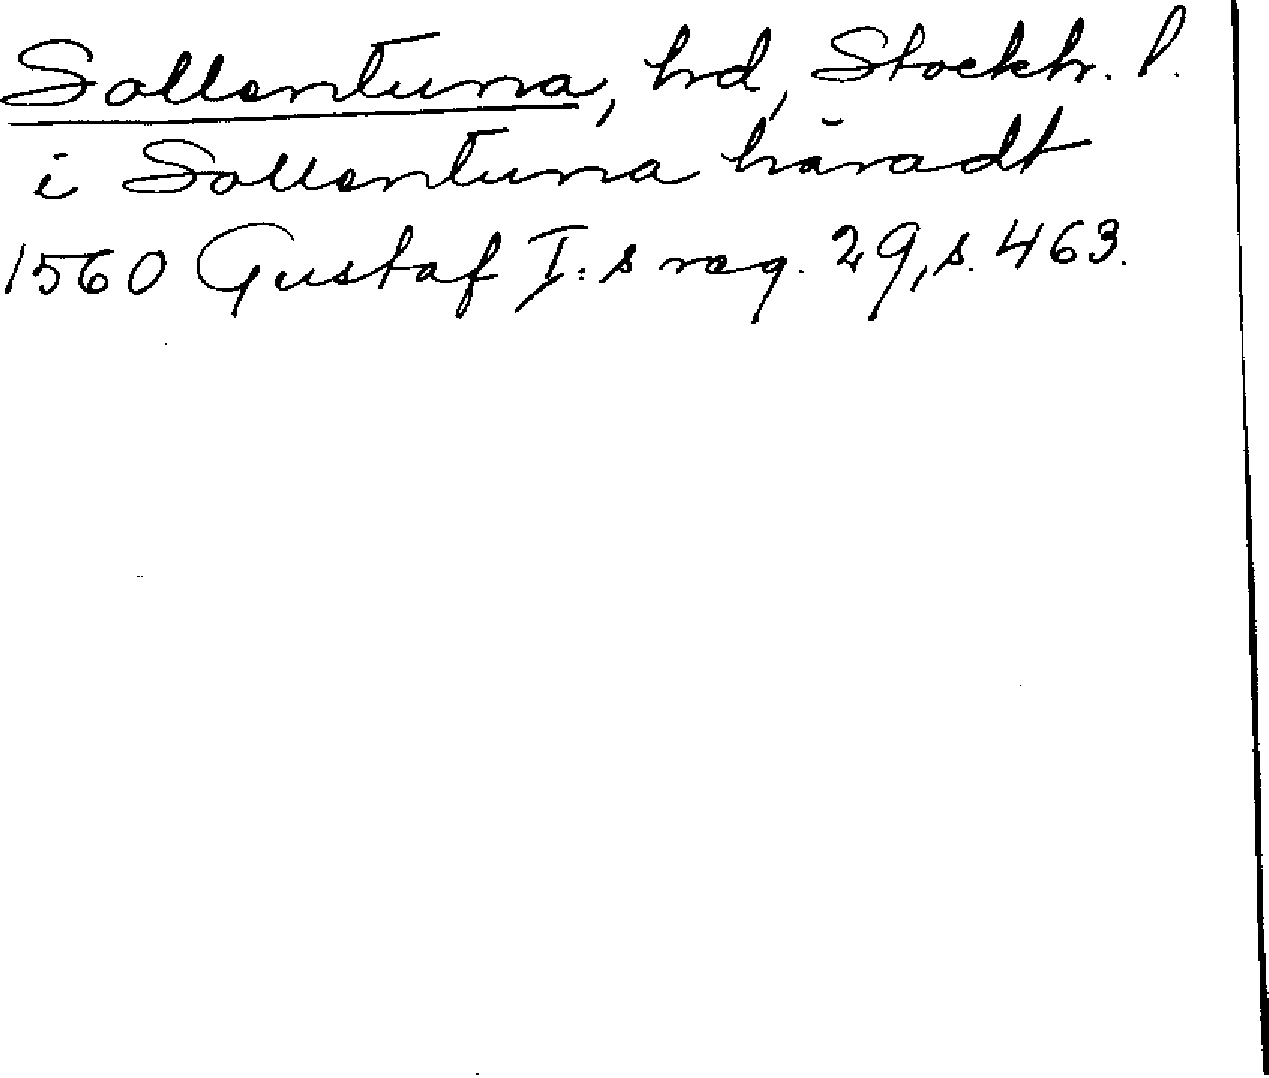 Sollentuna, hd, Stockh. l.
i Sollentuna häradt
1560 Gustaf I:s reg. 29, s. 463.